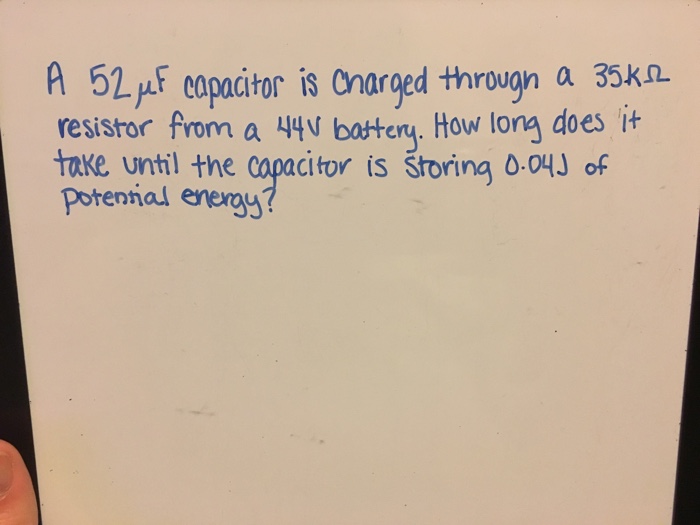 A 52 µF capacitor is charged through a 35kΩ
resistor from a 44V battery. How long does it
take until the capacitor is storing 0.04J of
potential energy?